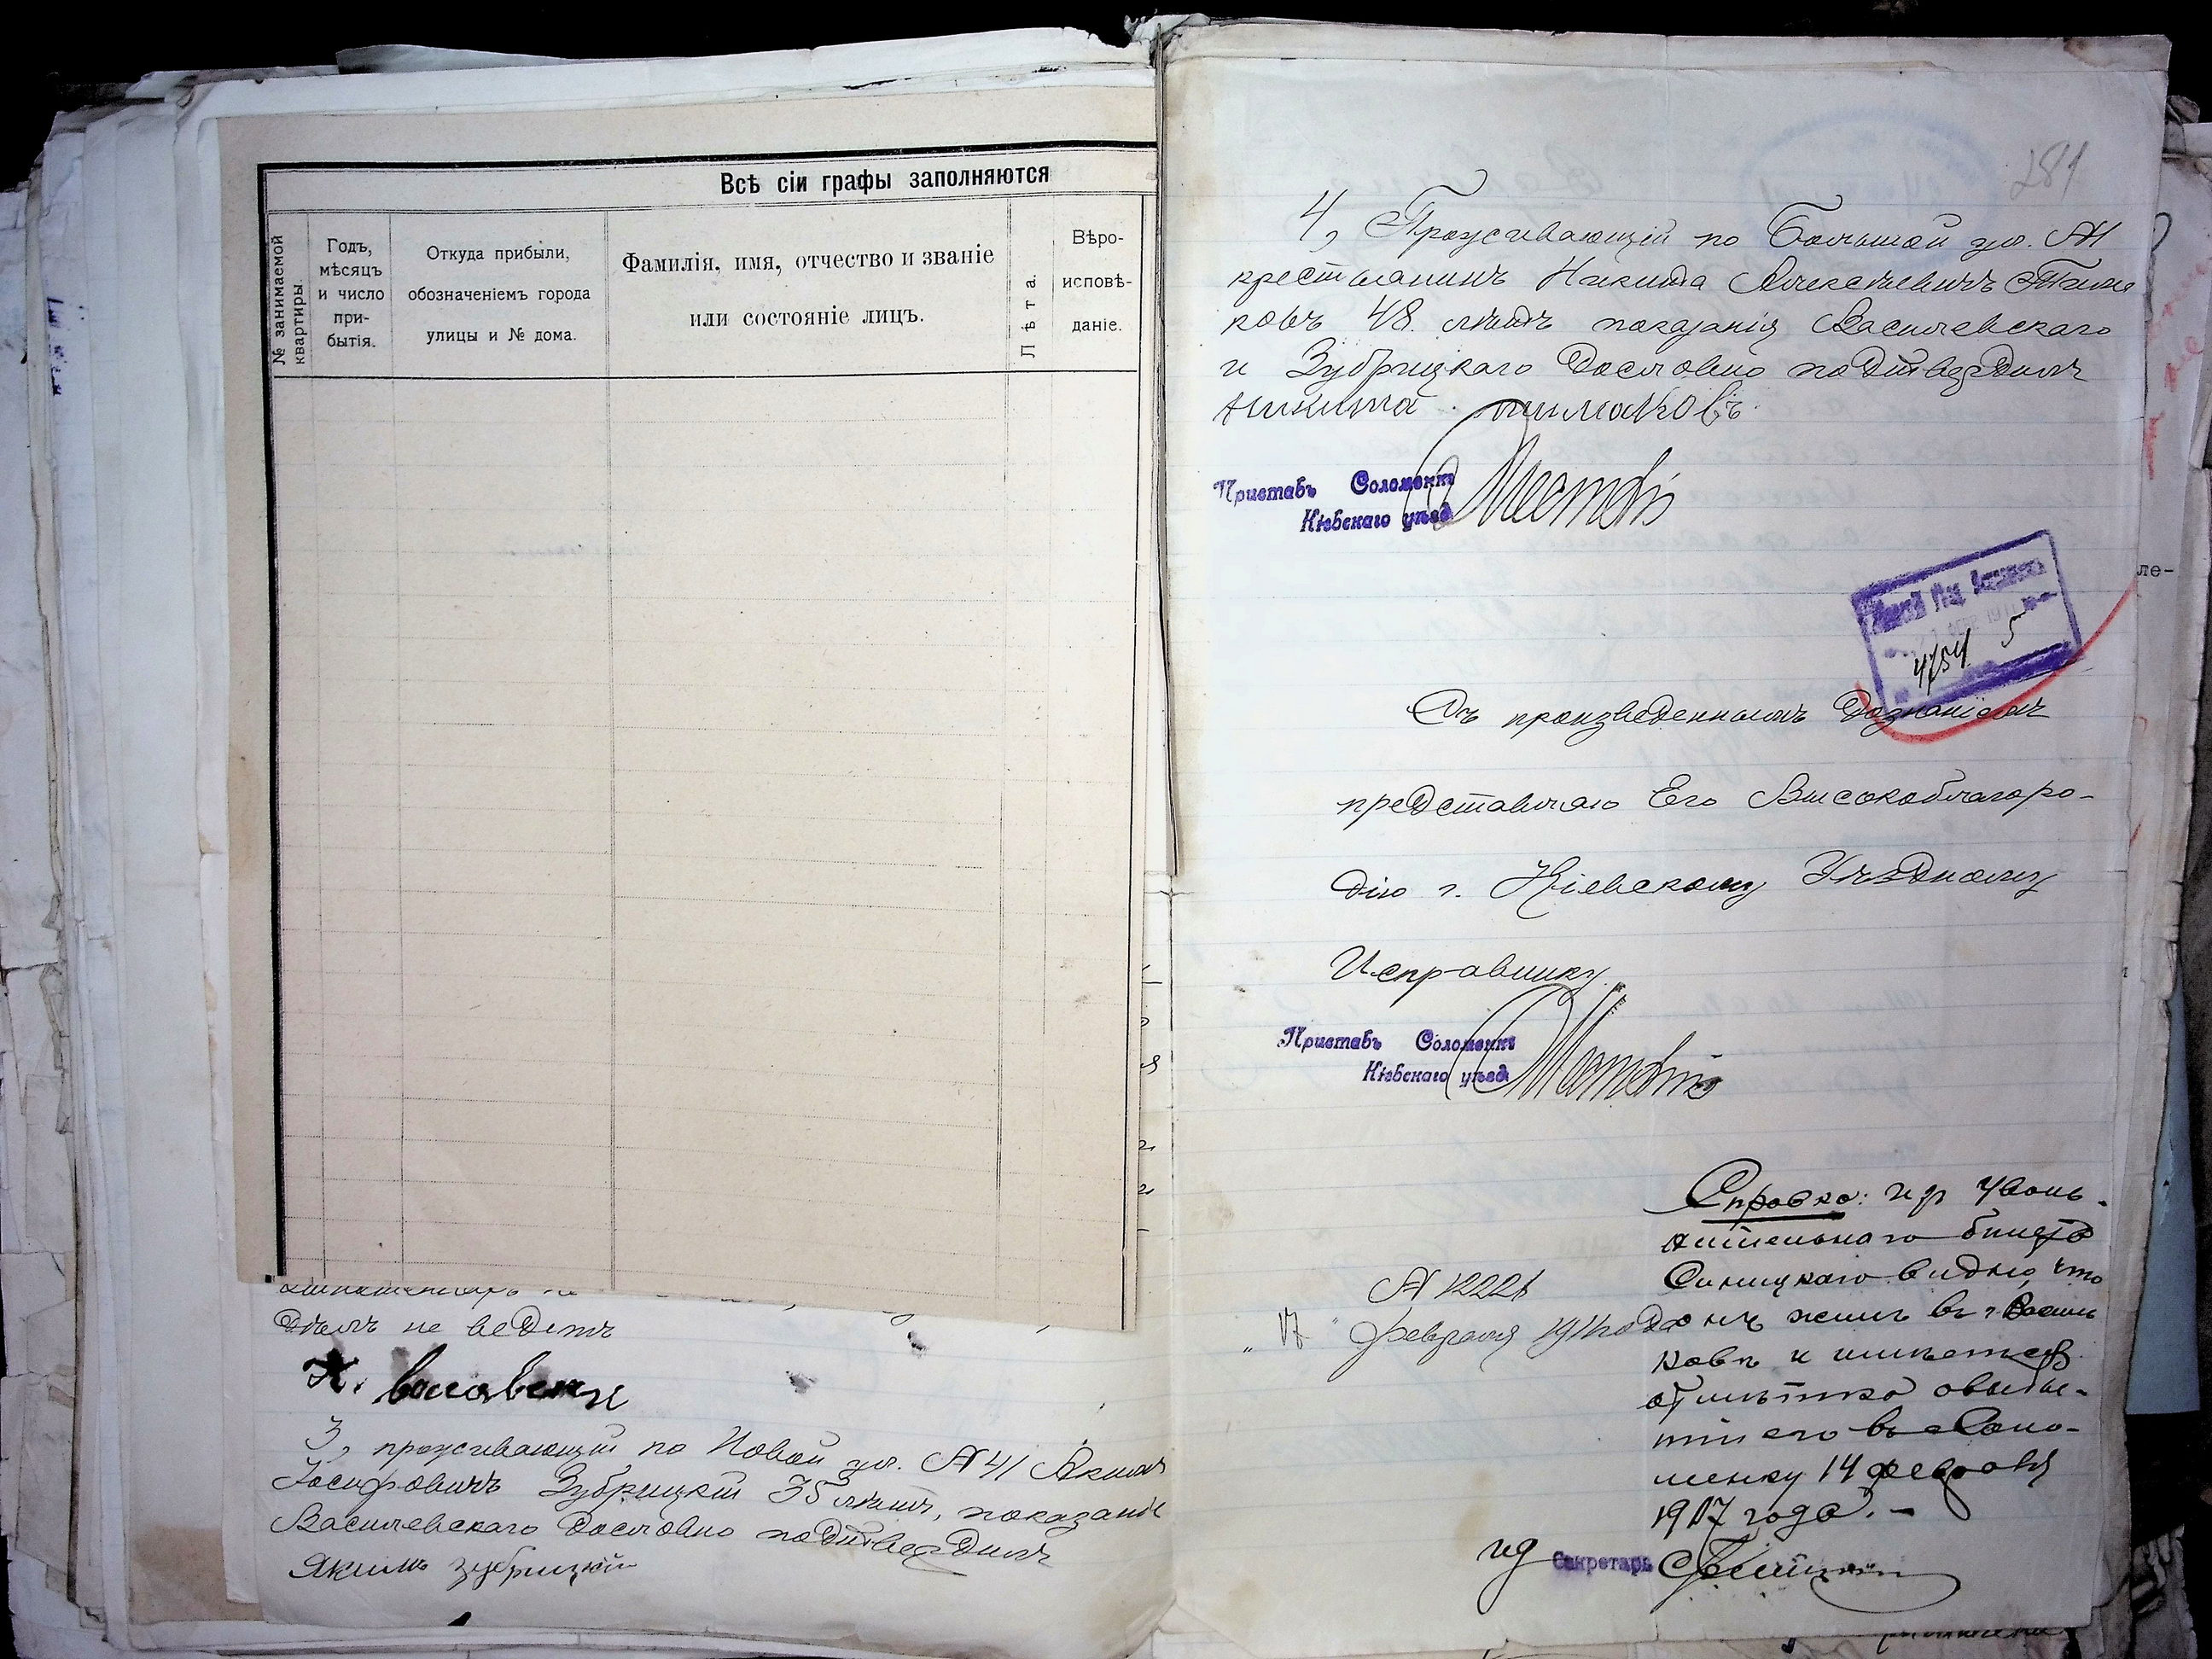 Всѣ сіи графы заполняются
№ занимаемой квартиры.
Годъ,
мѣсяцъ
и число
при-
бытія.
Откуда прибыли,
обозначеніемъ города
улицы и № дома.
Фамилія, имя, отчество и званіе
или состояніе лицъ.
Лѣта.
Вѣро-
исповѣ-
даніе.
дѣлъ не ведетъ
3, проживающій по Новой ул. № 41 Якимъ
Іосифовичъ Зубрицкій 35 лѣтъ, показаніе
Василевскаго дословно подтвердилъ
Якимъ зубрицкій
281
4, Проживающій по Большой ул. №
крестьянинъ Никита Алексѣевичъ
ковъ 48 лѣтъ показанія Василевскаго
и Зубрицкаго дословно подтвердилъ
Никита
Приставъ Соломенки
Кіевскаго уѣзд
4754 5
Съ произведеннымъ дознаніемъ
представляю Его Высокоблагоро-
дію г. Кіевскому Уѣздному
Исправнику.
Приставъ Соломенки
Кіевскаго уѣзд
№ 12221
„ 17 " февраля 1911 года
Справка: изъ уволь-
нительнаго билета
Синицкаго видно, что
онъ жилъ въ г. Василь
ковѣ и имѣется
отмѣтка о выбы-
тіи его въ Соло-
менку 14 февраля
1907 года. –
ид Секретаря
ле-